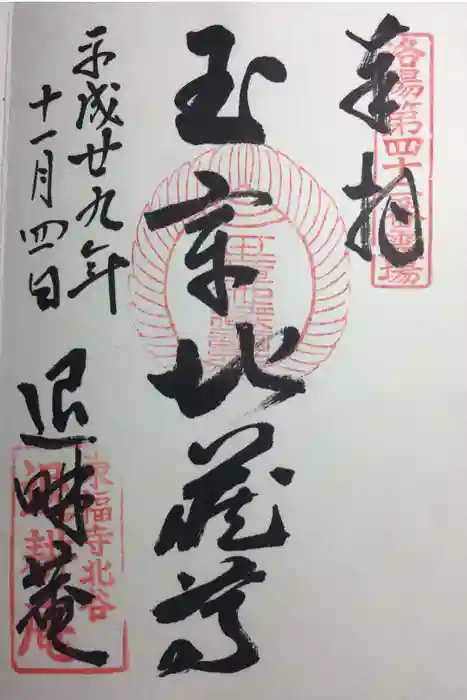 奉拝
洛陽第四十霊場
玉章地蔵尊
平成廿九年
十一月四日
退耕庵
東福寺北谷
退耕庵